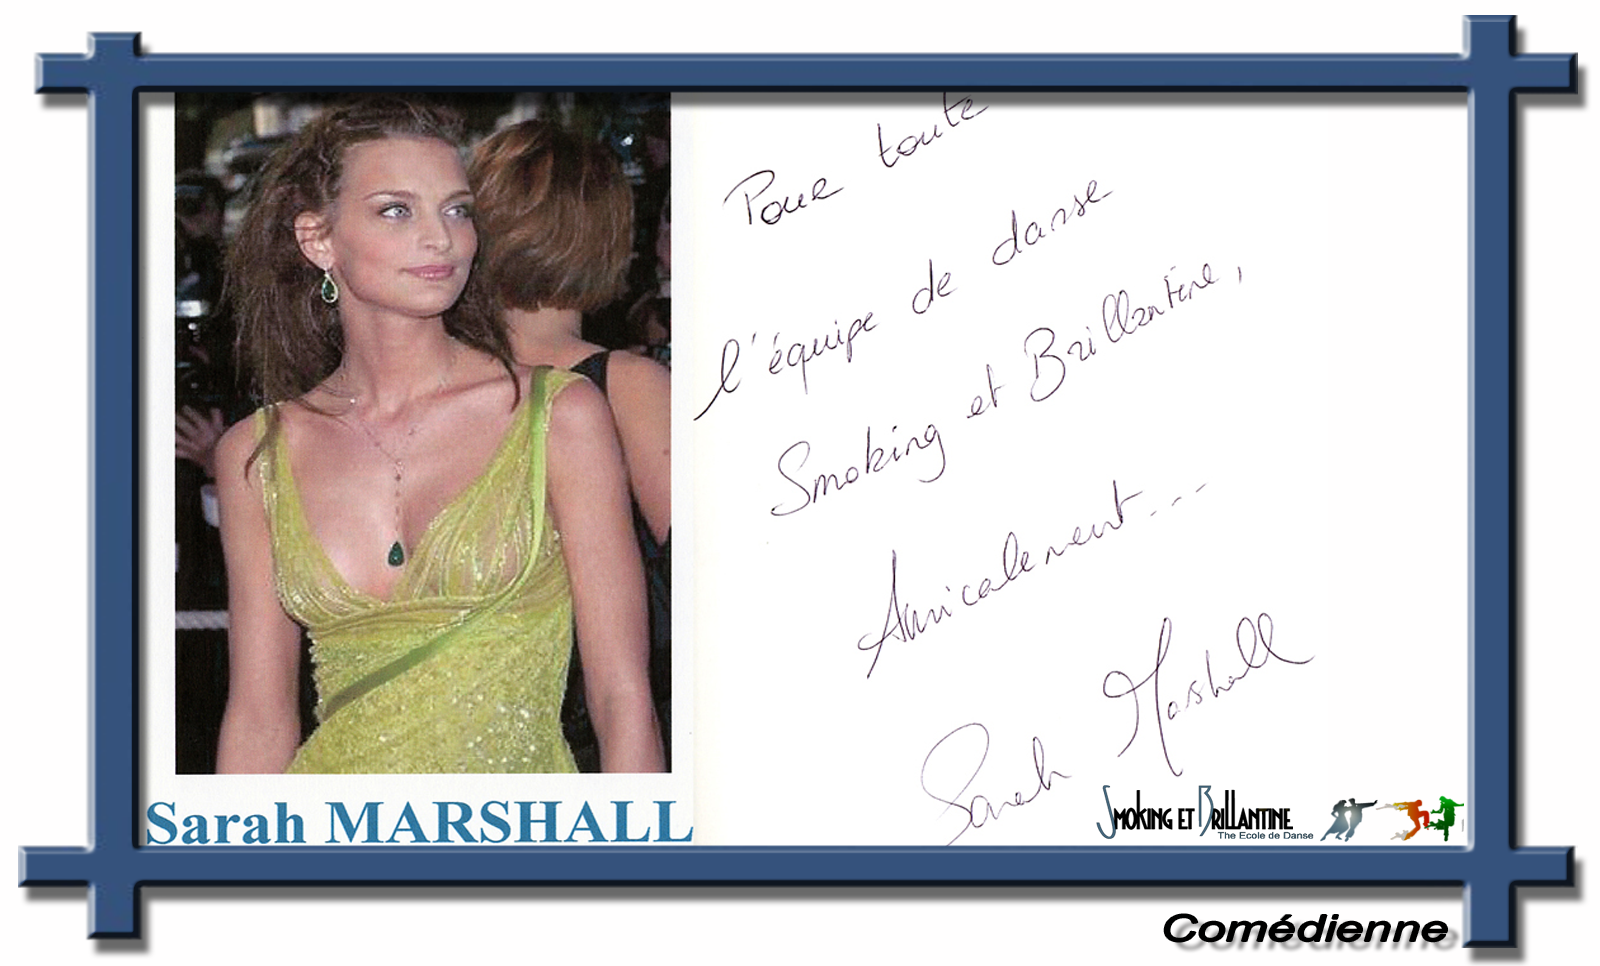 Pour toute
l'équipe de danse
Smoking et Brillantine,
Amicalement...
Sarah Marshall
Sarah MARSHALL
SMOKING ET BRILLANTINE
The Ecole de Danse
Comédienne